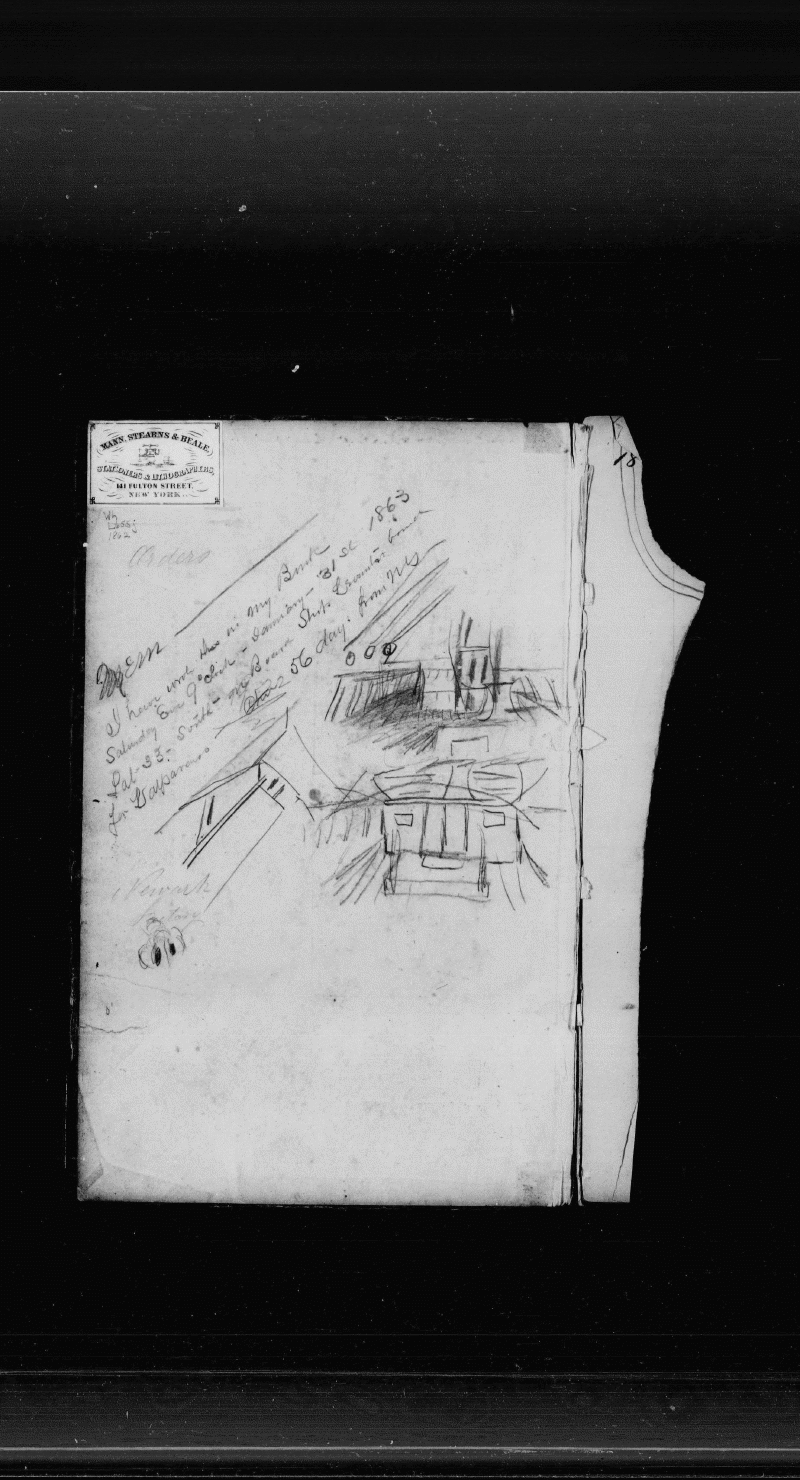 MANN, STEARNS & BEALE,
STATIONERS & LITHOGRAPHERS,
141 FULTON STREET,
NEW YORK.
18
1862
Orders
Mem
I have this in my Bunk
Saturday Eve 9 o'clock - January - 31st 1863
Lat - 33 - South - on Board Ship bound
for Valparaiso 56 days from NY
Newark